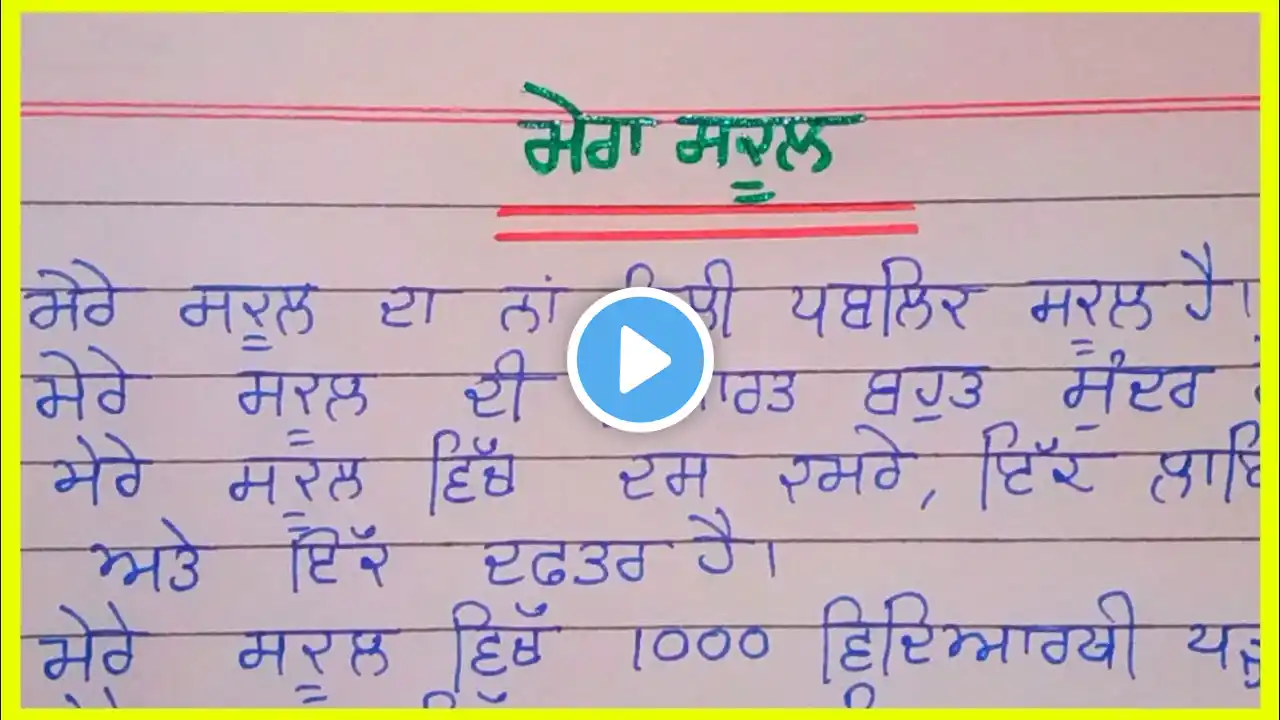 ਮੇਰਾ ਸਕੂਲ
ਮੇਰੇ ਸਕੂਲ ਦਾ ਨਾਂ ਪਬਲਿਕ ਸਕੂਲ ਹੈ।
ਮੇਰੇ ਸਕੂਲ ਦੀ ਬਹੁਤ ਸੁੰਦਰ
ਮੇਰੇ ਸਕੂਲ ਵਿੱਚ ਦਸ ਕਮਰੇ, ਇੱਕ
ਅਤੇ ਇੱਕ ਦਫਤਰ ਹੈ।
ਮੇਰੇ ਸਕੂਲ ਵਿੱਚ 1000 ਵਿਦਿਆਰਥੀ